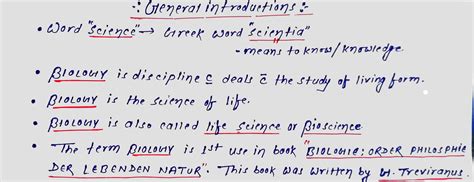 :General introductions:-
• Word "Science" → Greek word "Scientia"
- means to know/knowledge.
• BIOLOGY is discipline c̄ deals c̄ the study of living form.
• BIOLOGY is the science of life.
• BIOLOGY is also called life science or Bioscience
• The term BIOLOGY is 1st use in book "BIOLOGIE; ORDER PHILOSPHIE
DER LEBENDEN NATUR". This book was written by H. Treviranus